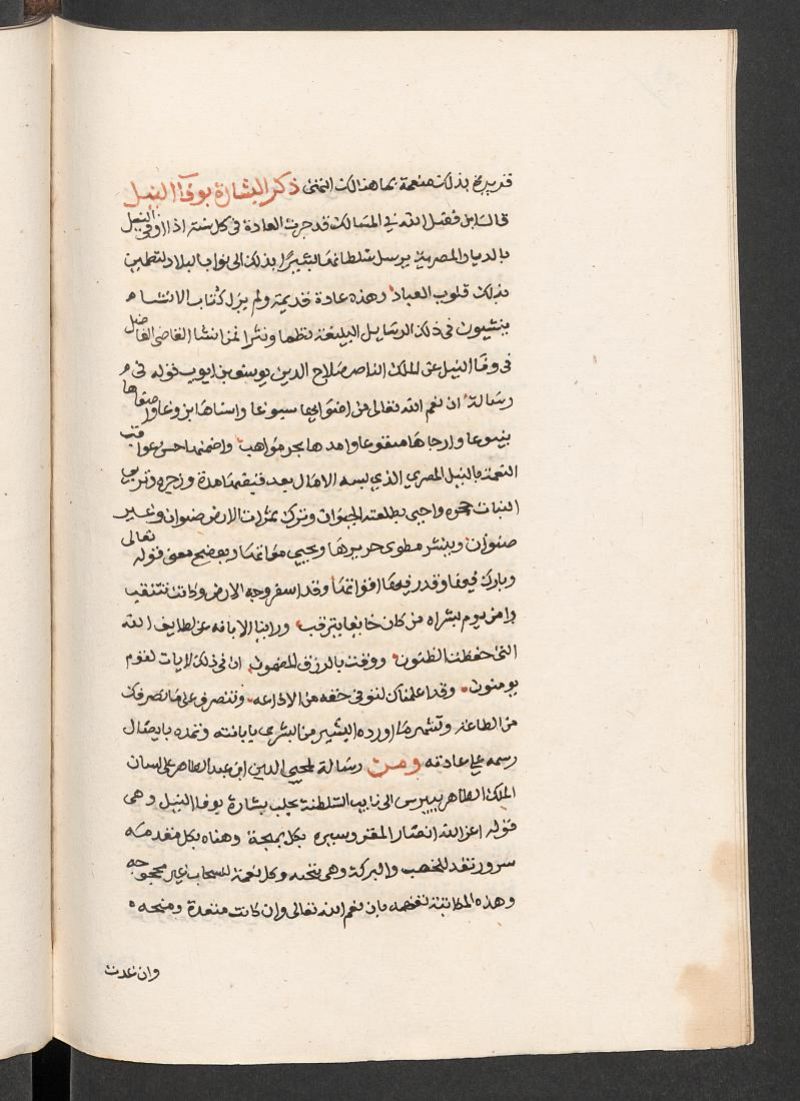 بذلك منعمة بما هنالك التمنى ذكر البشارة بوفاء النيل
قال ابن فضل الله فى المسالك قد جرت العادة فى كل سنة اذا اوفى النيل
بالديار المصرية يرسل سلطانها بشيرا بذلك الى نواب البلاد لتطمين
بذلك قلوب العباد وهذه عادة قديمة ولم يزل كتاب الانشاء
ينشيون فى ذلك الرسايل البليغة نظما ونثرا فمن انشا القاضى الفاضل
فى وفا النيل عن الملك الناصر صلاح الدين يوسف بن ايوب قوله فى
رسالة ان نعم الله تعالى من اضوايها سبوغا واسناها بزوغا واصفاها
ينبوعا وارجاها منفوعا وامدها بحر مواهب واضمنها حسن عواقب
النعمة بالنيل المصرى الذى يبسط الامال بعد قبضها مده وجزره وتربى
النبات حجره واحيى بطلعته الحيوان وترك ثمرات الارض صنوان وغير
صنوان وينشر مطوى حريرها ويحيى مواتها ويوضح معنى قوله تعالى
وبارك فيها وقدر فيها اقواتها وقد اسفر وجه الارض وكانت تتنقب
وامن يوم بشراه من كان خايفا يترقب وراينا الابانة عن لطايف الله
التى حققت الظنون ووفت بالرزق المضمون ان فى ذلك لايات لقوم
يومنون وقد اعلمناك لتوفى حقه من الاذاعه وتتصرف على ما نصرفك
من الطاعة وتشهر ما اورده البشير من البشرى بابانته وتمده بايصال
رسمه على عادته ومن رسالة لمحيى الدين ابن عبد الظاهر على لسان
الملك الظاهر بيبرس الى نايب السلطنة بحلب بشارة بوفا النيل وهى
قوله اعز الله انصار المقر وسره بكل بهجة وهناه بكل مقدمه
سرور تغد للخصب والبركة وهى منتجه وكل نعمة للسحاب غير محوجه
وهذه المكاتبة تفهمه بان نعم الله تعالى وان كانت متعدة ومنحه
وان غدت